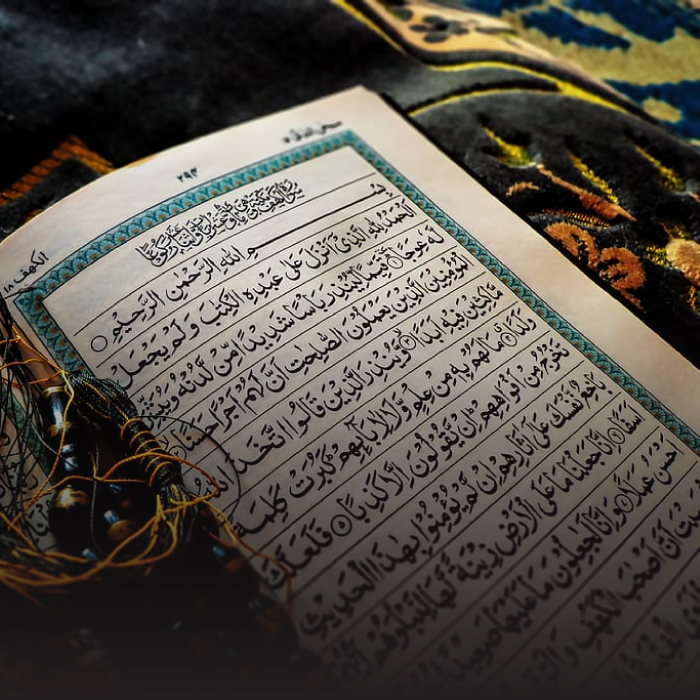 ٢٩٣
الكهف ١٨
بِسْمِ اللهِ الرَّحْمٰنِ الرَّحِيْمِ ○
اَلْحَمْدُ لِلّٰهِ الَّذِيْٓ اَنْزَلَ عَلٰى عَبْدِهِ الْكِتٰبَ وَ لَمْ يَجْعَلْ
لَّهٗ عِوَجًا ① قَيِّمًا لِّيُنْذِرَ بَاْسًا شَدِيْدًا مِّنْ لَّدُنْهُ وَيُبَشِّرَ
الْمُؤْمِنِيْنَ الَّذِيْنَ يَعْمَلُوْنَ الصّٰلِحٰتِ اَنَّ لَهُمْ اَجْرًا حَسَنًا
مَّاكِثِيْنَ فِيْهِ اَبَدًا ③ وَّيُنْذِرَ الَّذِيْنَ قَالُوا اتَّخَذَ اللهُ
وَلَدًا ④ مَا لَهُمْ بِهٖ مِنْ عِلْمٍ وَّلَا لِاٰبَآئِهِمْ كَبُرَتْ كَلِمَةً
تَخْرُجُ مِنْ اَفْوَاهِهِمْ اِنْ يَّقُوْلُوْنَ اِلَّا كَذِبًا ⑤ فَلَعَلَّكَ
بَاخِعٌ نَّفْسَكَ عَلٰٓى اٰثَارِهِمْ اِنْ لَّمْ يُؤْمِنُوْا بِهٰذَا الْحَدِيْثِ
اَسَفًا ⑥ اِنَّا جَعَلْنَا مَا عَلَى الْاَرْضِ زِيْنَةً لَّهَا لِنَبْلُوَهُمْ
اَحْسَنُ عَمَلًا ⑦ وَاِنَّا لَجٰعِلُوْنَ مَا عَلَيْهَا صَعِيْدًا
اَنَّ اَصْحٰبَ الْكَهْفِ